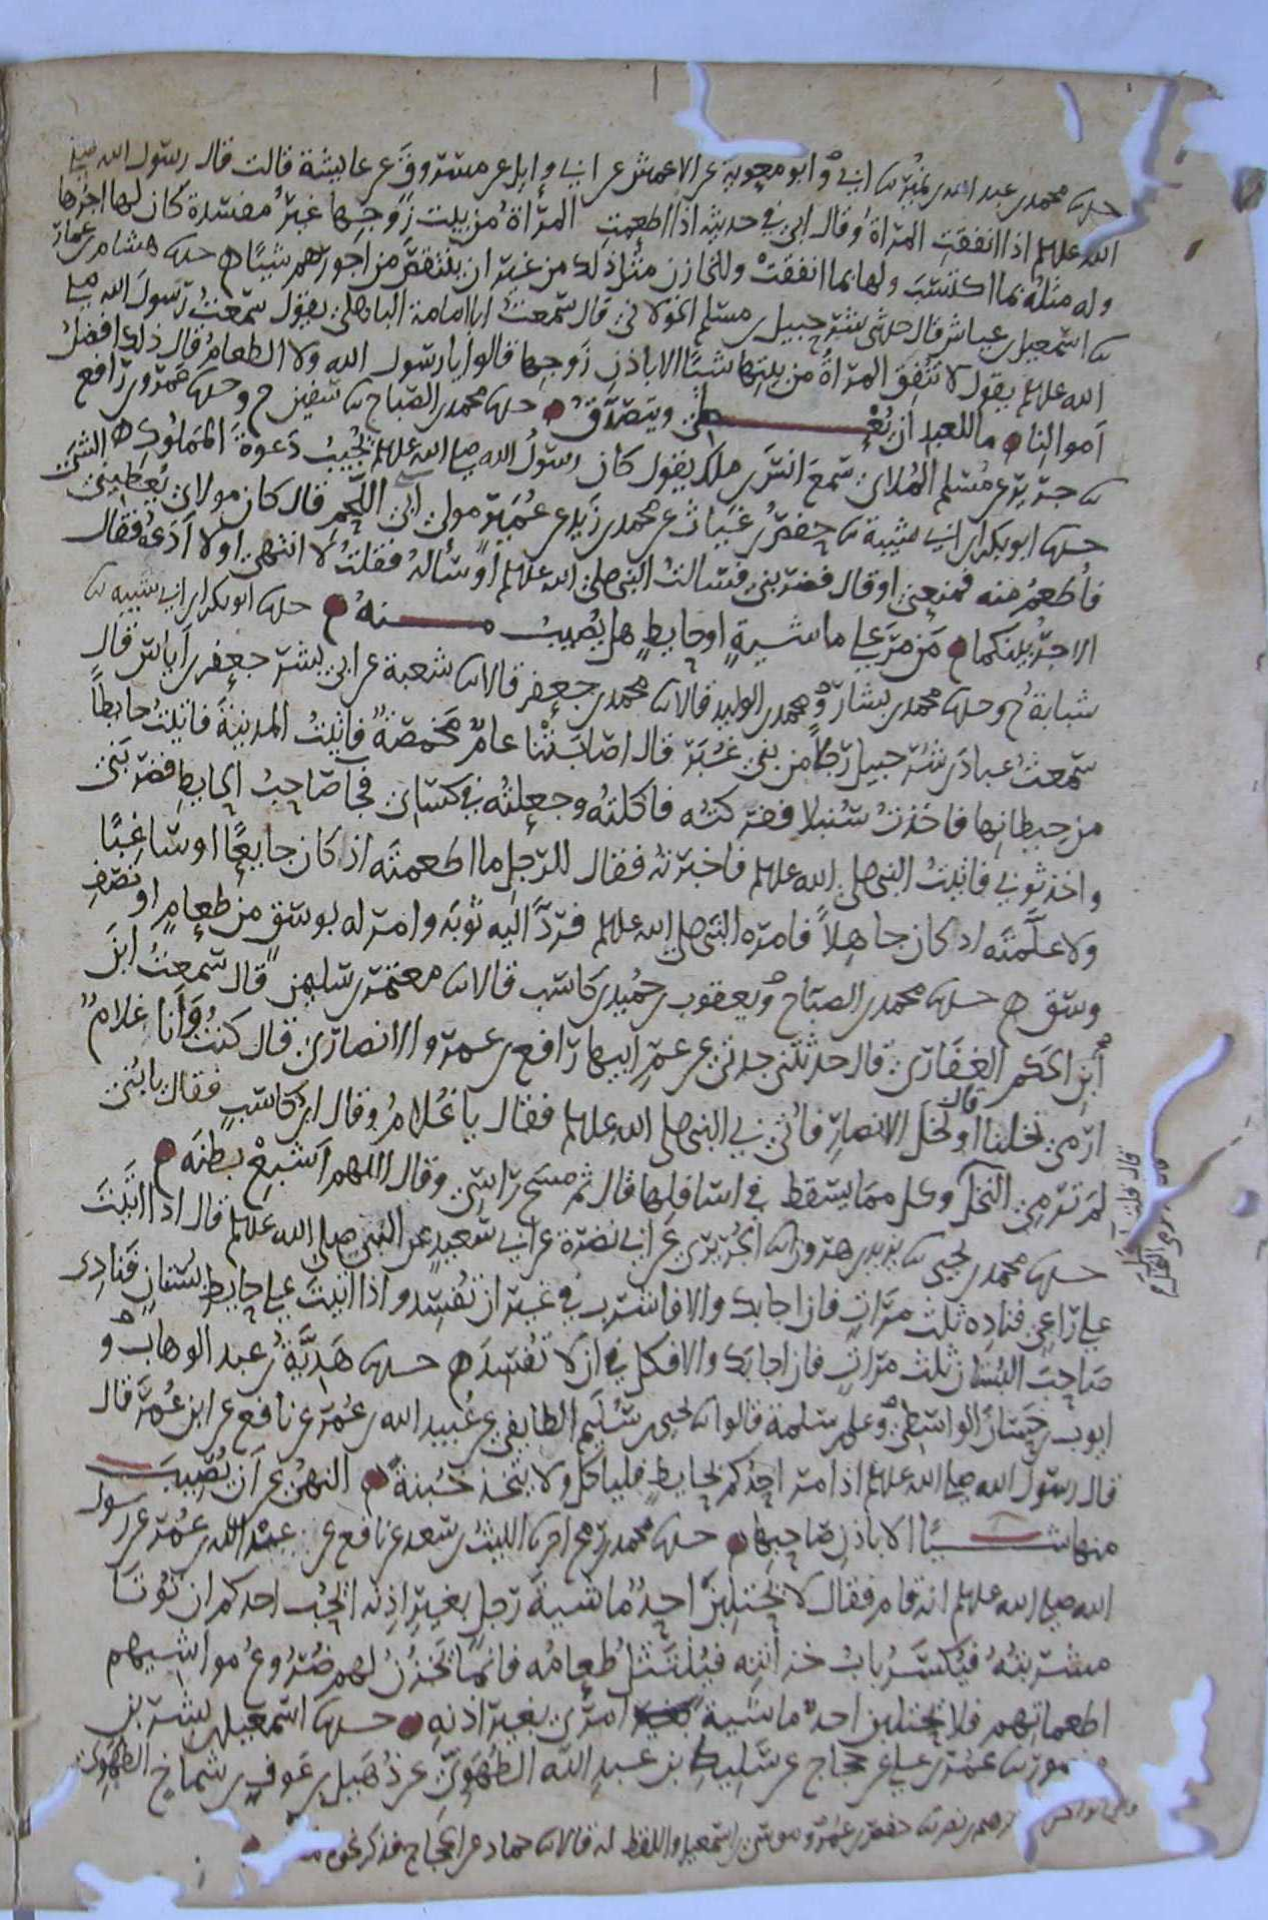 حدثنا محمد بن عبد الله بن نمير ثنا ابي وابو معوية عن الاعمش عن ابي وايل عن مسروق عن عايشة قالت قال رسول الله صلى
الله عليه وسلم اذا انفقت المراة وقال ابي في حديثه اذا اطعمت المراة من بيت زوجها غير مفسدة كان لها اجرها
وله مثله بما اكتسب ولها بما انفقت وللخازن مثل ذلك من غير ان ينتقص من اجورهم شيئا ه حدثنا هشام بن عمار
ثنا اسمعيل بن عياش قال حدثني شرحبيل بن مسلم الخولاني قال سمعت ابا امامة الباهلي يقول سمعت رسول الله صلى
الله عليه وسلم يقول لا تنفق المراة من بيتها شيئا الا باذن زوجها قالوا يا رسول الله ولا الطعام قال ذلك افضل
اموالنا ه ما للعبد ان يعطي ويتصدق ه حدثنا محمد بن الصباح ثنا سفين ح وحدثنا عمرو بن رافع
ثنا جرير عن مسلم الملاي سمع انس بن ملك يقول كان رسول الله صلى الله عليه وسلم يجيب دعوة المملوك ه
حدثنا ابو بكر بن ابي شيبة ثنا حفص بن غياث عن محمد بن زيد عن عمير مولى ابي اللحم قال كان مولاي يعطيني الشي
فاطعم منه فمنعني او قال فضربني فسالت النبي صلى الله عليه وسلم او ساله فقلت لا انتهي او لا ادعه فقال
الاجر بينكما ه من مر على ماشية او حايط هل يصيب منه ه حدثنا ابو بكر بن ابي شيبه ثنا
شبابة ح وحدثنا محمد بن بشار ومحمد بن الوليد قالا ثنا محمد بن جعفر قالا ثنا شعبة عن ابي بشر جعفر بن اياس قال
سمعت عباد بن شرحبيل رجلا من بني غبر قال اصابتنا عام مخمصة فاتيت المدينة فاتيت حايطا
من حيطانها فاخذت سنبلا ففركته فاكلته وجعلته في كساي فجا صاحب الحايط فضربني
واخذ ثوبي فاتيت النبي صلى الله عليه وسلم فاخبرته فقال للرجل ما اطعمته اذ كان جايعا او ساغبا
ولا علمته اذ كان جاهلا فامره النبي صلى الله عليه وسلم فرد اليه ثوبه وامر له بوسق من طعام او نصف
وسق ه حدثنا محمد بن الصباح ويعقوب بن حميد بن كاسب قالا ثنا معتمر بن سليمن قال سمعت ابن
ابي الحكم الغفاري قال حدثتني جدتي عن عم ابيها رافع بن عمرو الانصاري قال كنت وانا غلام
ارمي نخلنا او قال نخل الانصار فاتي بي النبي صلى الله عليه وسلم فقال يا غلام وقال ابن كاسب فقال يا بني
لم ترمي النخل وكل مما يسقط في اسافلها قال ثم مسح راسي وقال اللهم اشبع بطنه ه
حدثنا محمد بن يحيى ثنا يزيد بن هرون انا الجريري عن ابي نضرة عن ابي سعيد عن النبي صلى الله عليه وسلم قال اذا اتيت
على راعي فناده ثلث مرات فان اجابك والا فاشرب في غير ان تفسد واذا اتيت على حايط بستان فنادي
صاحب البستان ثلث مرات فان اجابك والا فكل في ان لا تفسد ه حدثنا هدية بن عبد الوهاب و
ايوب بن حسان الواسطي وعلي بن سلمة قالوا ثنا يحيى بن سليم الطايفي عن عبيد الله بن عمر عن نافع عن ابن عمر قال
قال رسول الله صلى الله عليه وسلم اذا مر احدكم بحايط فلياكل ولا يتخذ خبنة ه النهي عن ان يصيب
منها شيا الا باذن صاحبها ه حدثنا محمد بن رمح انا الليث بن سعد عن نافع عن عبد الله بن عمر عن رسول
الله صلى الله عليه وسلم انه قام فقال لا يحتلبن احد ماشية رجل بغير اذنه ايحب احدكم ان توتا
مشربته فيكسر باب خزانته فينتثل طعامه فانما تخزن لهم ضروع مواشيهم
اطعماتهم فلا يحتلبن احد ماشية امري بغير اذنه ه حدثنا اسمعيل بن بشر بن
منصور ثنا عمر بن علي عن حجاج عن سليط بن عبد الله الطهوي عن ذهيل بن عوف بن شماخ الطهوي
نصر ثنا حفص بن عمر وموسى بن اسمعيل واللفظ له قالا ثنا حماد عن الحجاج فذكر نحوه
قال قلت